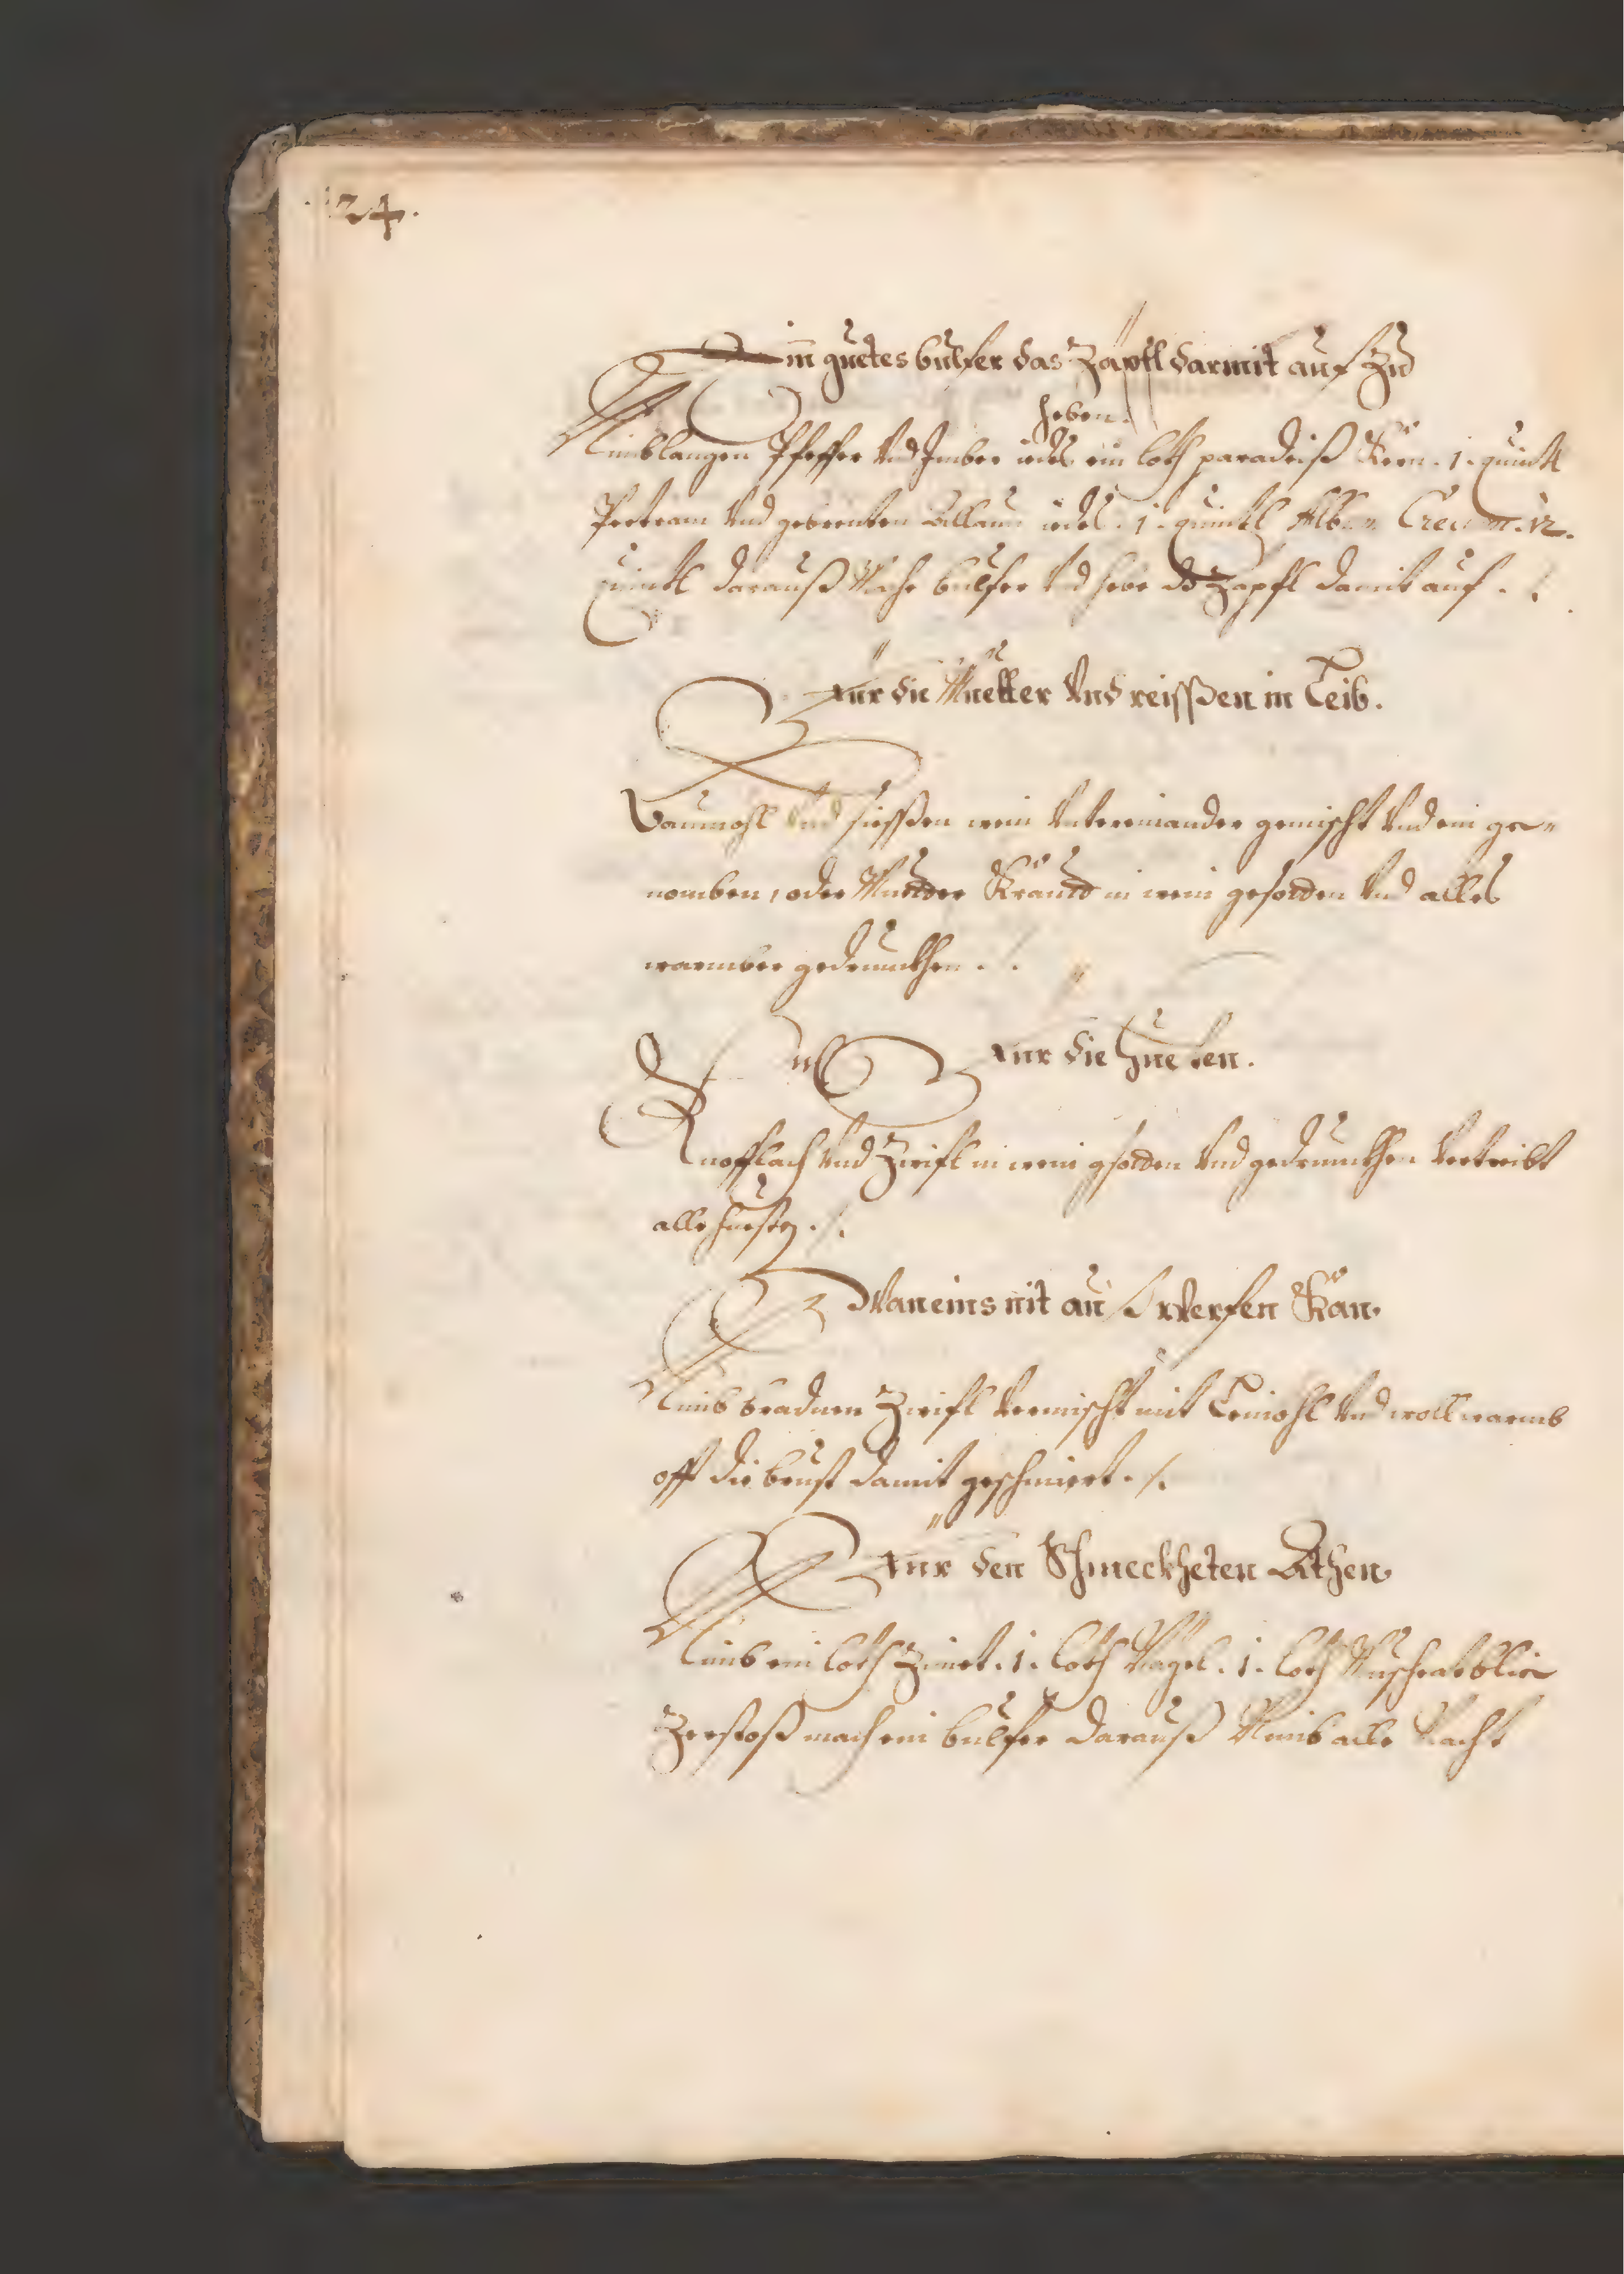 .124.
Ein guetes bulfer das Zäpfl darmit auf Zu
heben.
Nimb langen Pfeffer Vnd Jmber iedes ein loth paradeiß Kern .1. quintl
Pertram Vnd gebrenten Allaun iedes .1. quintl Album Grecum .12.
quintl darauß Mache bulfer Vnd hebe ds Zapfl damit auf ./.
Für die Muetter Vnd reissßen in Leib.
Baumohl Vnd siessßen wein Vntereinander gemischt Vnd ein ge=
nomben, oder Muetter Kraut in wein gesotten Vnd alles
warmber getrunkhen ./.
Für die Huesten.
Knofflach Vnd Zwifl in wein gsotten Vnd getrunkhen Vertreibt
alle huesten ./.
Wan eins nit auß werfen Kan.
Nimb bradnen Zwifl Vermischt mit Leinohl Vnd woll warmb
off die brust damit geschmiert ./.
Für den Schmeckheten Athen.
Nimb ein loth Zimet .1. loth Nägel .1. loth Muschcatblie
Zerstoß mach ein bulfer darauß Nimb alle Nacht